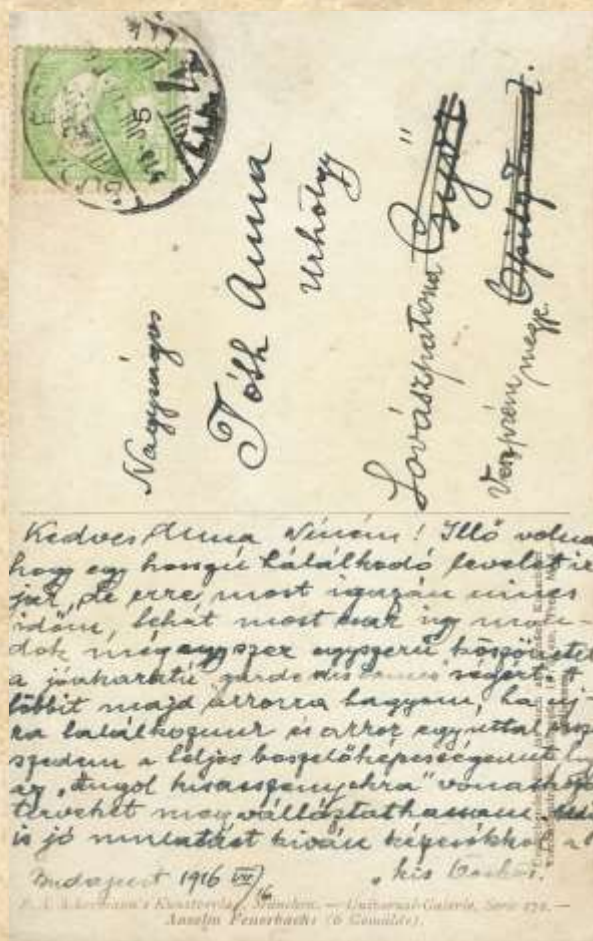 Nagyságos
Tóth Anna
Urhölgy
Lovászpatona
Veszprém megye.
Kedves Anna Néném! Illő volna
hogy egy hosszú hálálkodó levelet ir
jak, de erre most igazán nincs
időm, tehát most csak igy mon-
dok mégegyszer egyszerű köszönetet
a jóakaratú ségért. A
többit majd arra hagyom, ha uj-
ra találkozunk és akkor egyuttal össze
szedem a teljes beszélőképességemet hogy
az „Angol kisasszonyokra" vonatkozó
terveket megváltoztathassam.
is jó mulatást kiván kézcsókkal a
„kis
Budapest 1916 VII/16.
F. A. Ackermann's Kunstverlag, München. — Universal-Galerie, Serie 270. —
Anselm Feuerbachs (6 Gemälde).